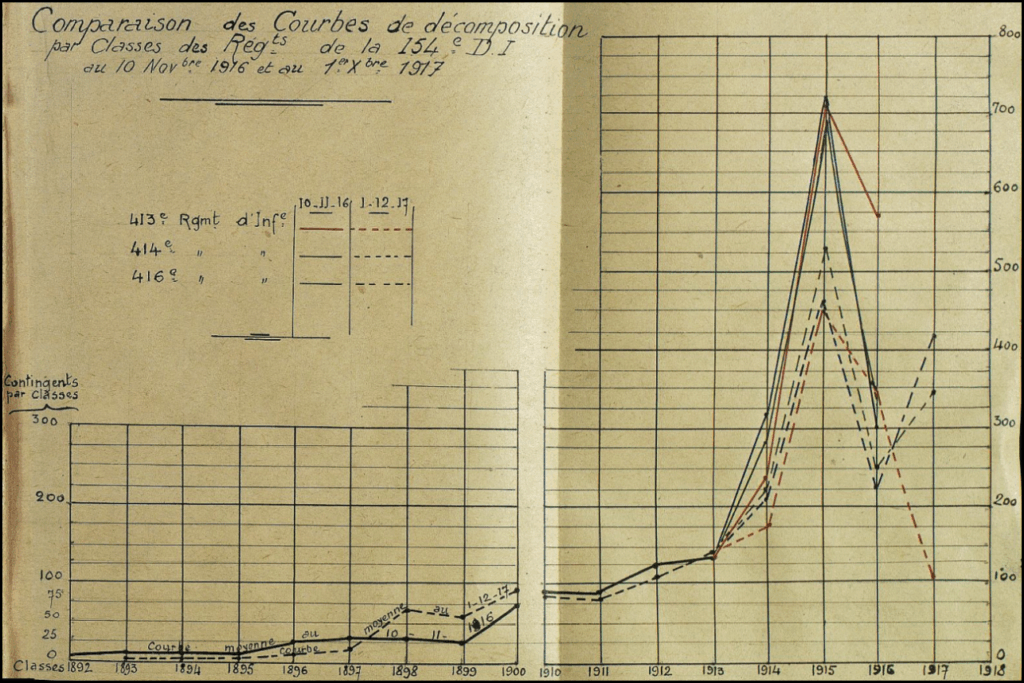 Comparaison des Courbes de décomposition
par Classes des Rég.ts de la 154e D.I
au 10 Novbre 1916 et au 1er Xbre 1917
10-11-16 1-12-17
413e Rgmt d'Infe
414e " "
416e " "
Contingents
par classes
300
200
100
75
50
25
0
800
700
600
500
400
300
200
100
0
Courbe moyenne au 10-11-1916
Courbe moyenne au 1-12-17
Classes 1892 1893 1894 1895 1896 1897 1898 1899 1900 1910 1911 1912 1913 1914 1915 1916 1917 1918